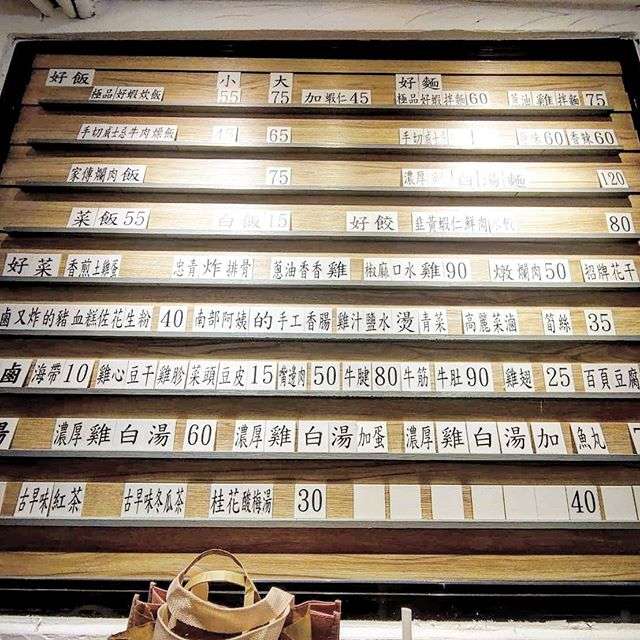 好飯 小 大 好麵
極品好蝦炊飯 55 75 加蝦仁45 極品好蝦拌麵60 蔥油雞拌麵75
手切威士忌牛肉燥飯 45 65 手切威士忌 60香辣60
家傳爌肉飯 75 濃厚 麵 120
菜飯55 白飯15 好餃 韭黃蝦仁鮮肉水餃 80
好菜 香煎土雞蛋 忠青炸排骨 蔥油香香雞 椒麻口水雞90 燉爌肉50 招牌花干
鹵又炸的豬血糕佐花生粉40 南部阿姨的手工香腸 雞汁鹽水燙青菜 高麗菜滷 筍絲35
鹵 海帶10 雞心豆干雞胗菜頭豆皮15 嘴邊肉50 牛腱80 牛筋牛肚90 雞翅25 百頁豆腐
湯 濃厚雞白湯60 濃厚雞白湯加蛋 濃厚雞白湯加魚丸
古早味紅茶 古早味冬瓜茶 桂花酸梅湯30 40